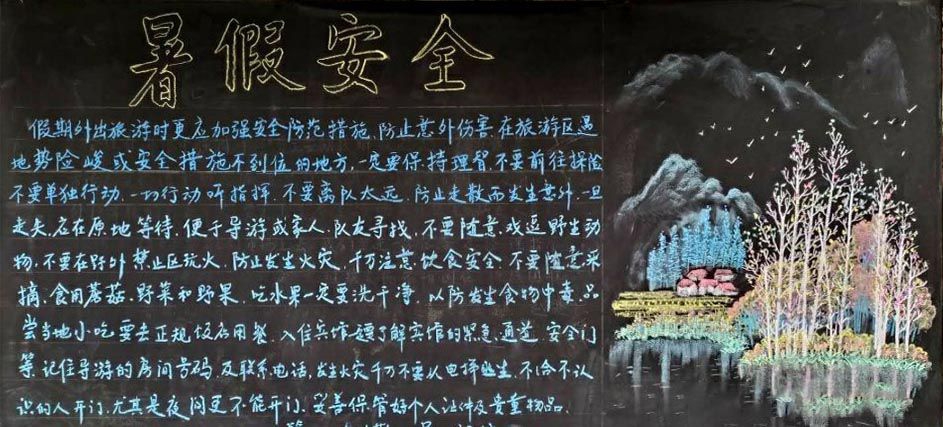 暑假安全
假期外出旅游时更应加强安全防范措施、防止意外伤害在旅游区遇
地势险峻或安全措施不到位的地方,一定要保持理智不要前往探险
不要单独行动、一切行动听指挥、不要离队太远、防止走散而发生意外、一旦
走失、应在原地等待、便于导游或家人、队友寻找、不要随意、戏逗野生动
物、不要在野外禁止区玩火、防止发生火灾、千万注意饮食安全、不要随意采
摘、食用蘑菇、野菜和野果、吃水果一定要洗干净、以防发生食物中毒、品
尝当地小吃要去正规饭店用餐、入住宾馆要了解宾馆的紧急通道、安全门
等、记住导游的房间号码及联系电话,发生火灾千万不要从电梯逃生、不给不认
识的人开门、尤其是夜间更不能开门、妥善保管好个人证件及贵重物品、